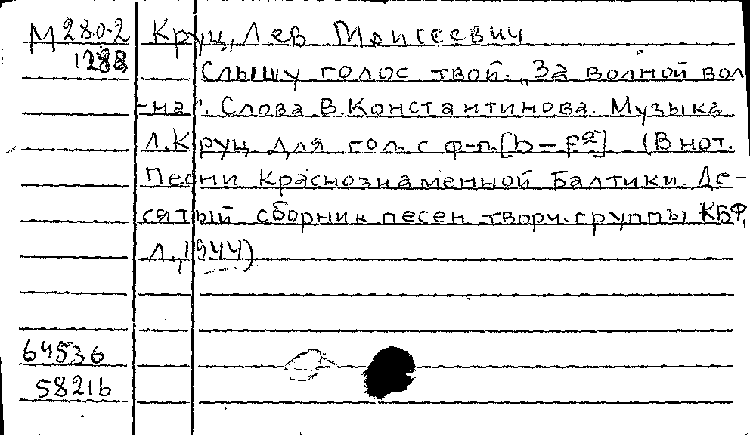 М 280-2 Круц, Лев Моисеевич
1288 Слышу голос твой. „За волной вол-
-на". Слова В. Константинова. Музыка
Л. Круц. Для гол. с ф-п. [b-f²] (В нот.
Песни Краснознаменной Балтики. Де-
сятый сборник песен творч. группы КБФ,
Л., 1944)
64536
58216